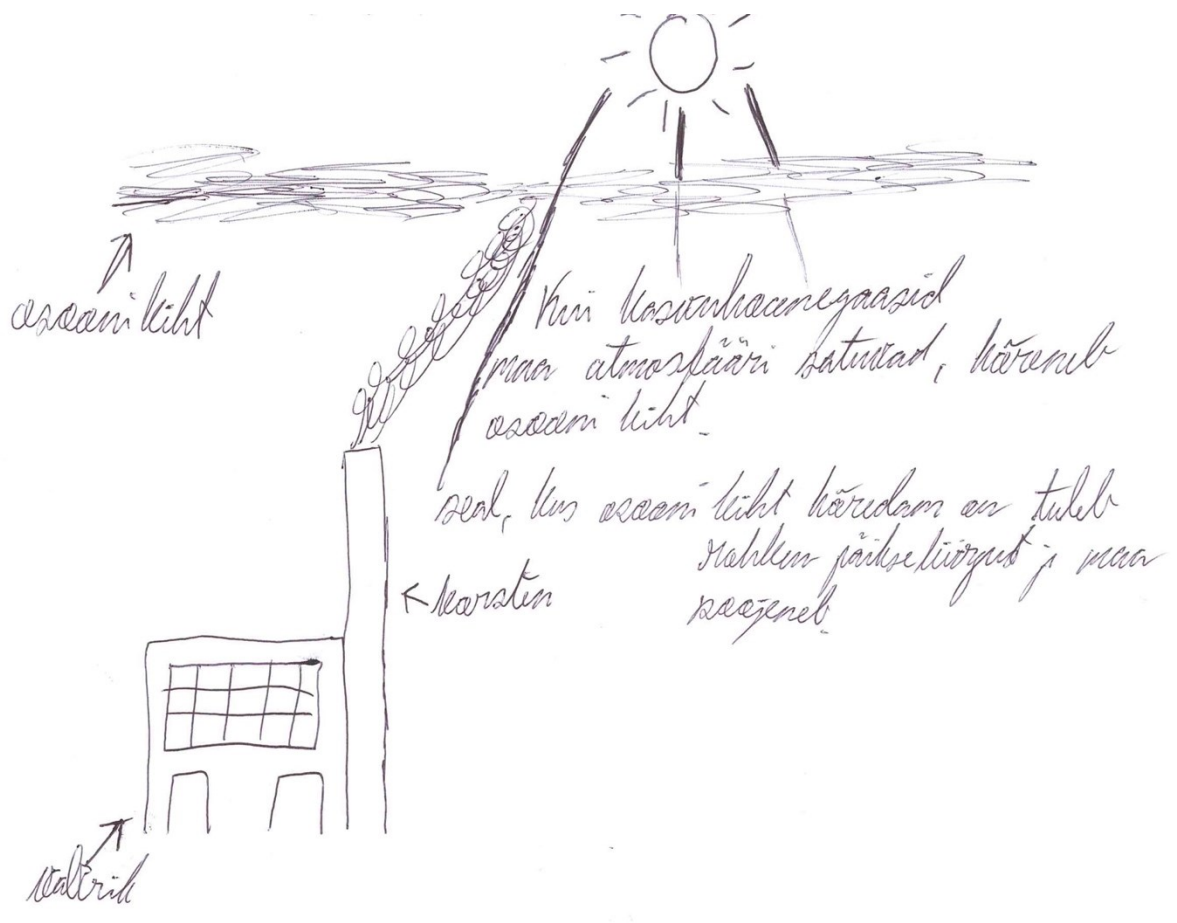 osooni kiht
Kui kasvuhoonegaasid
maa atmosfääri satuvad, hõreneb
osooni kiht.
seal, kus osooni kiht hõredam on tuleb
rohkem päiksekiirgust ja maa
soojeneb.
korsten
vabrik